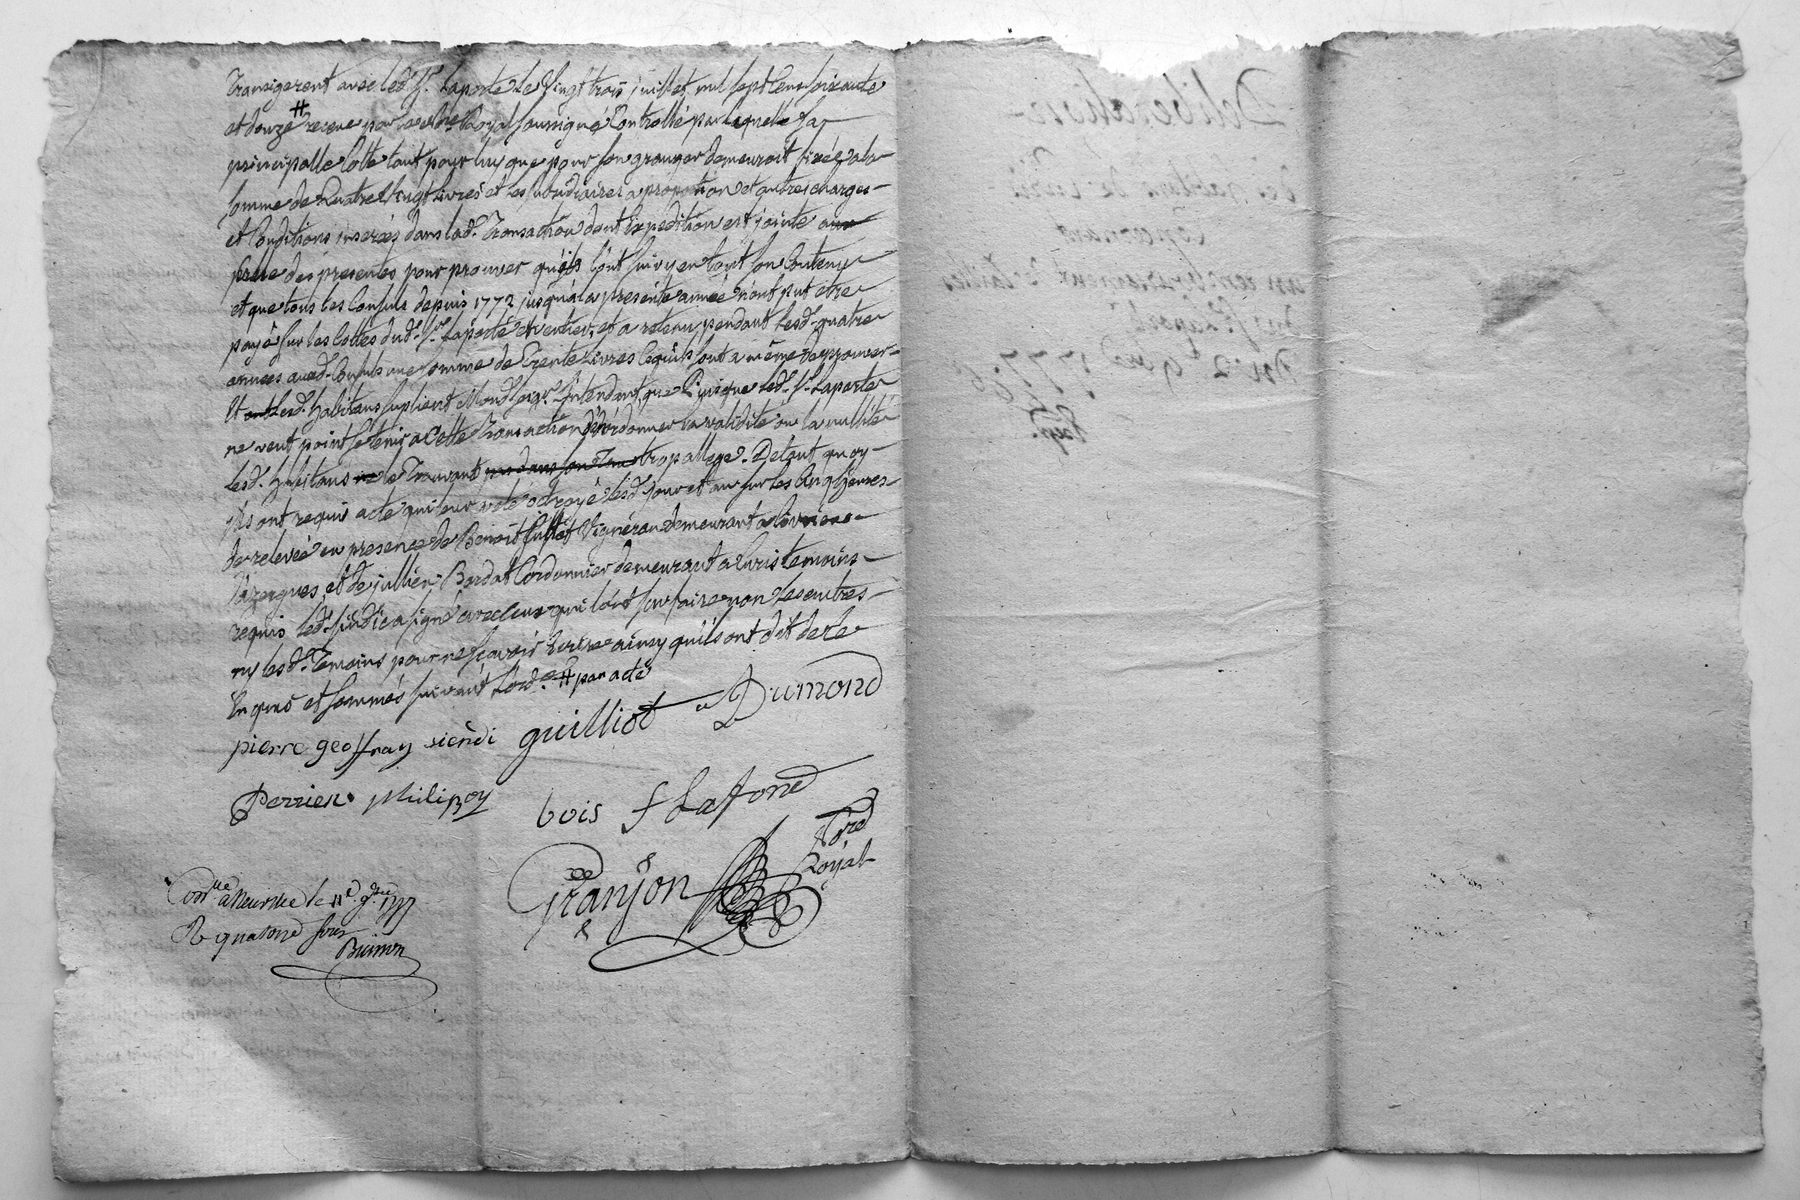 transigerent avec led. Sr. Laporte le vingt trois juillet mil sept cens soixante
et douze # recue par Royal soussigné Controllé par laquelle sa
principalle Cotte tant pour luy que pour son granger demeuroit fixée a la
somme de Quatre vingt Livres et les subsidiaires a proportion et autres charges
et Conditions inserées dans lad. Transaction dont Expedition est jointe
des presentes pour prouver quils l'ont suivy en tout son Contenu
et que tous les Consuls depuis 1772 jusqu'a la presente année n'ont put etre
payé sur les Cottes dud. Sr. Laporte et a retenu pendant lesd. quatre
années auxd. Consuls une somme de Trente Livres Ce quils sont a même de prouver
Et lesd. habitans suplient Mond. seigr. L'Intendant que Puisque led. Sr. Laporte
ne veut point se tenir a Cette Transaction D'ordonner la validité ou la nullité
lesd. habitans le Trouvant trop allegé. Detout quoy
ils ont requis acte qui leur a eté octroyé lesd. jour et an sur les cinq heures
de relevée en presence de Benoit Vigneron demeurant a
d'azergues et de jullien Bardat Cordonnier demeurant a Curis temoins
requis led. sindic a signé avec ceux qui l'ont sçu faire non les autres
ny lesd. Temoins pour ne sçavoir Ecrire ainsy quils ont dit de ce
Enquis et sommés suivant l'ord. # par acte
pierre geoffray siendi guilliot Dumond
Perrier philipoy bois f Laffond
Granjon Nore Royal
Contlle a Neuville le 11e. 9bre
R quatorze sous
Buirion
Deliberation
des habitans de Curis
Concernant
un de tailles
du Sr. Laporte
Du 2 9bre 1776
Exp.